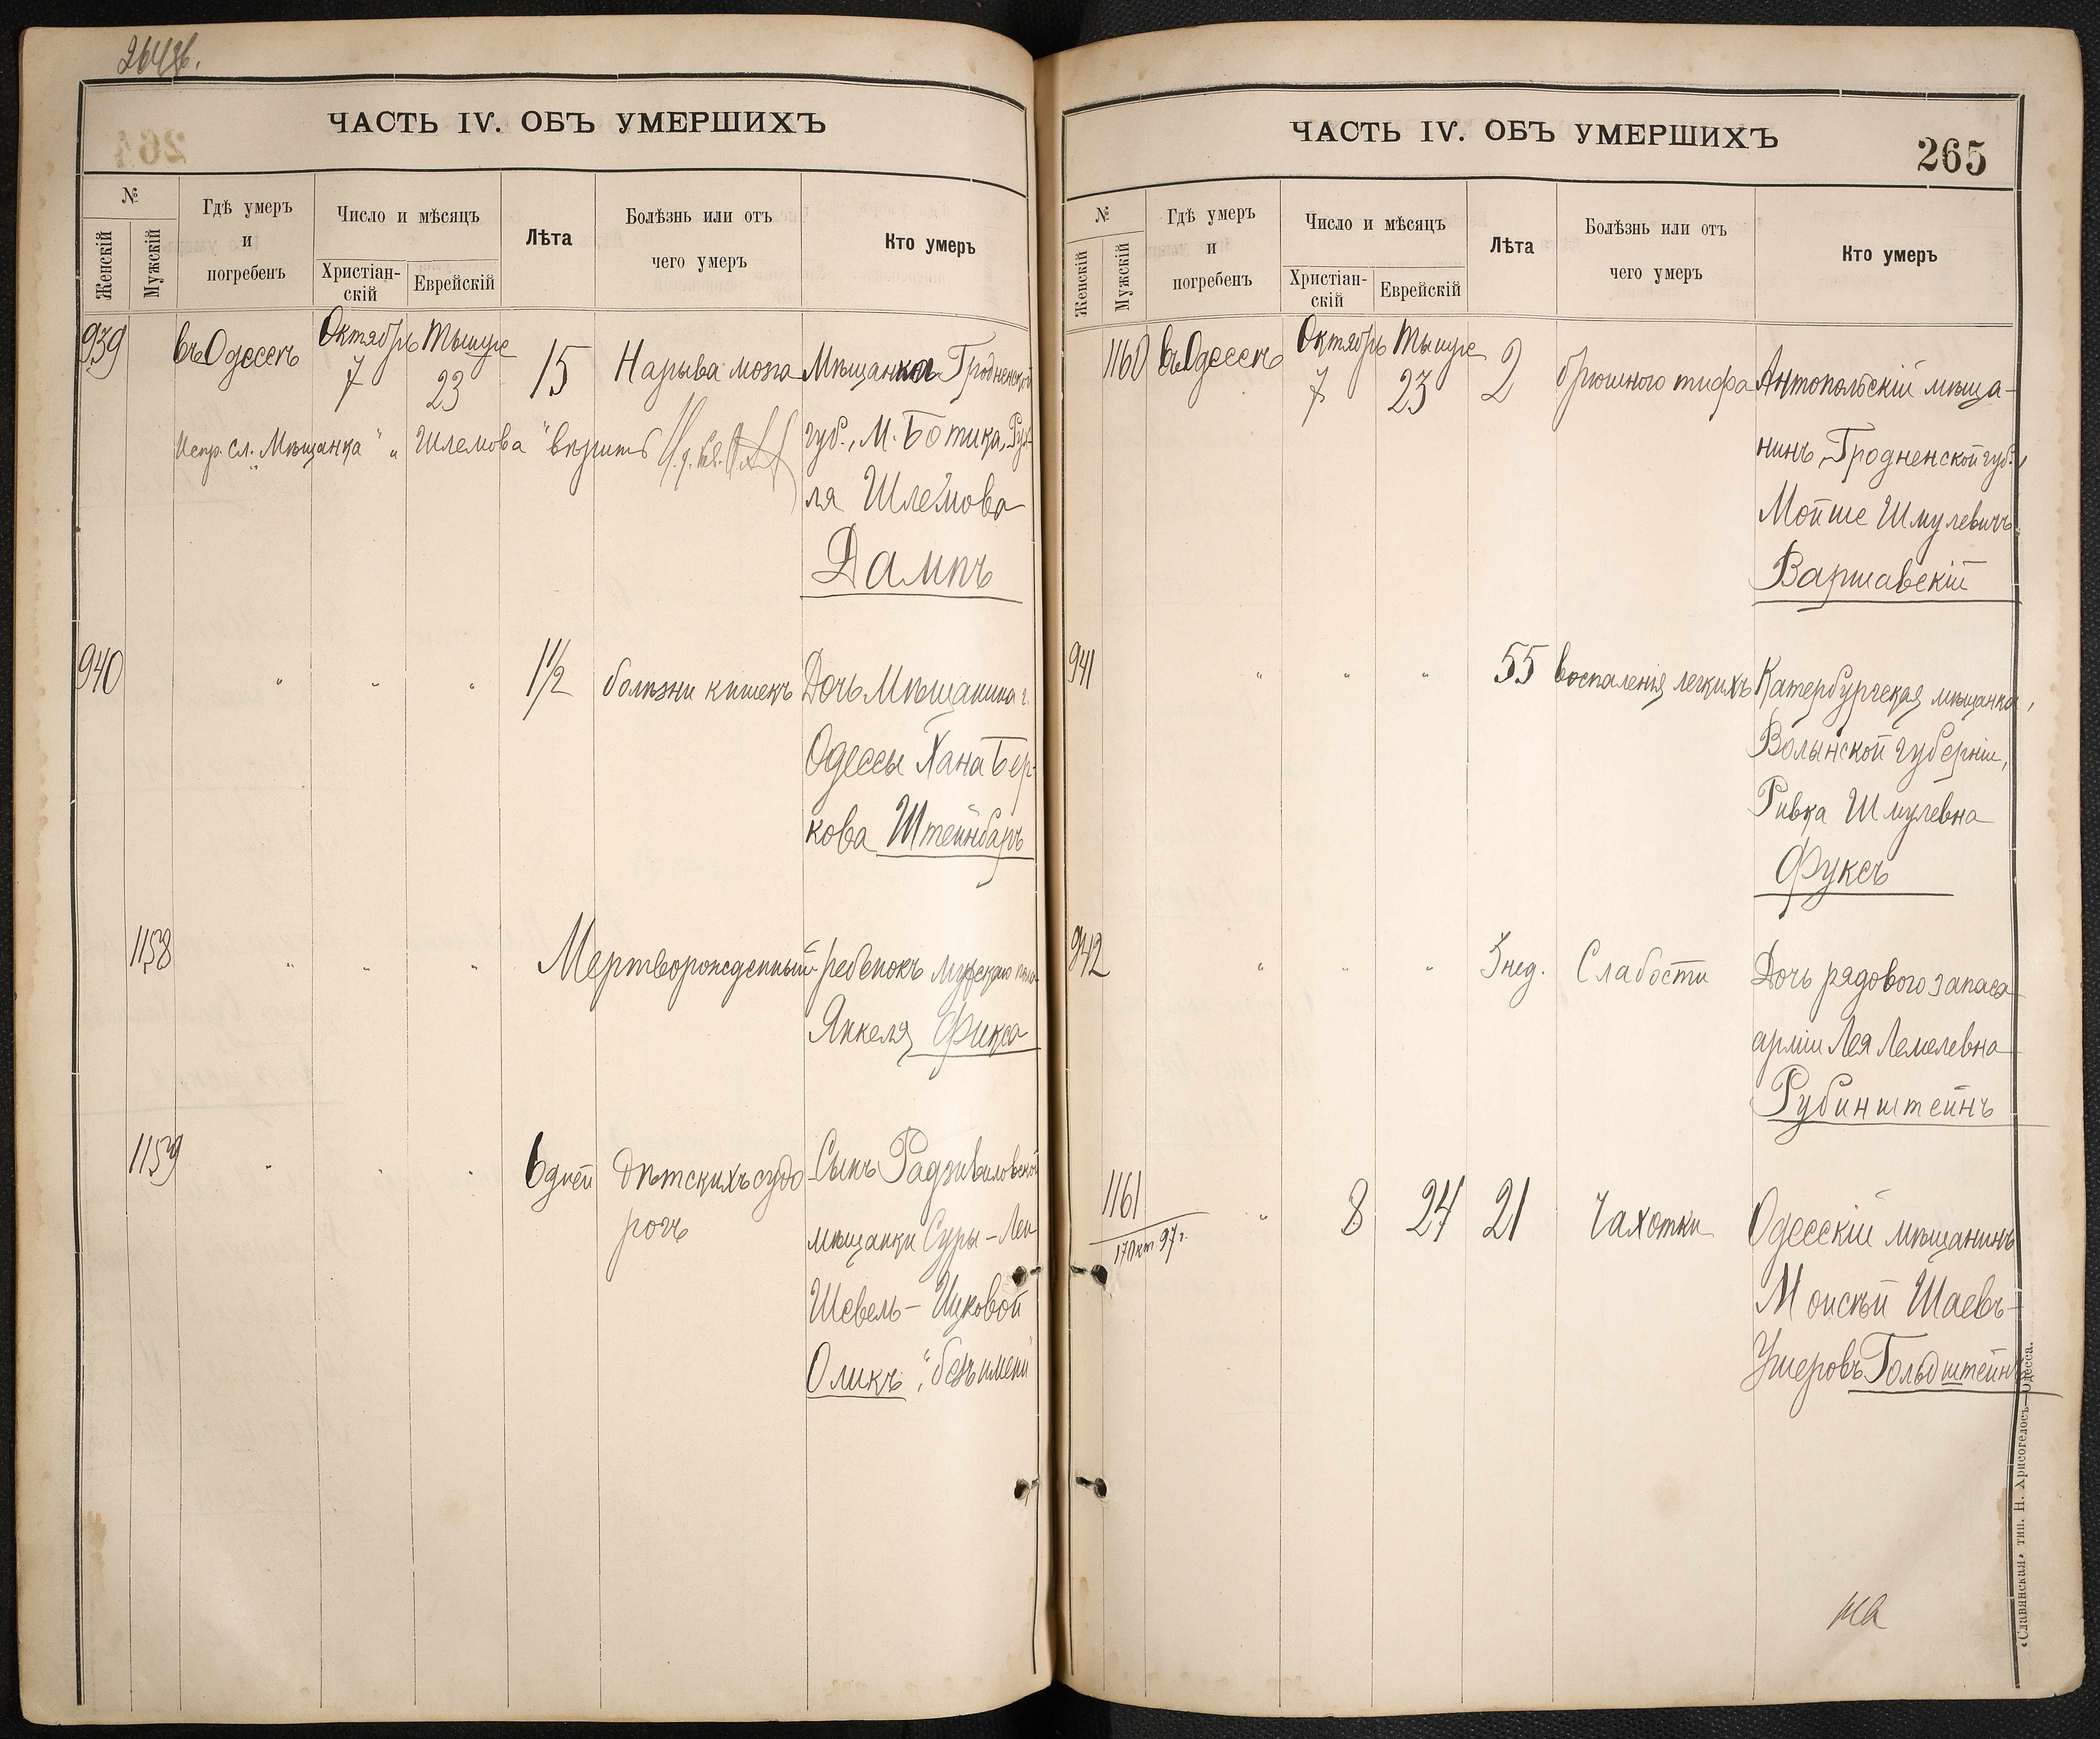 264об.
ЧАСТЬ IV. ОБЪ УМЕРШИХЪ
№
Женскій
Мужскій
Гдѣ умеръ
и
погребенъ
Число и мѣсяцъ
Христіан-
скій
Еврейскій
Лѣта
Болѣзнь или отъ
чего умеръ
Кто умеръ
939 въ Одессѣ Октябрь 7 Тышре 23 15 Нарыва мозга Мѣщанка Гродненской
губ., М. Ботика, Рух-
ля Шлемова
Дампъ
Испр. сл. Мѣщанка " " Шлемова " вѣрить
940 " " " 1½ болѣзни кишекъ Дочь Мѣщанина г.
Одессы Хана Бер-
кова Штейнбаръ
1158 " " " Мертворожденный ребенокъ мужскаго пола
Янкеля Фикса
1159 " " " 6 дней дѣтскихъ судо
рогъ
Сынъ Радзивиловской
мѣщанки Суры-Леи
Шевель-Ицковой
Оликъ, "безъ имени
ЧАСТЬ IV. ОБЪ УМЕРШИХЪ
265
№
Женскій
Мужскій
Гдѣ умеръ
и
погребенъ
Число и мѣсяцъ
Христіан-
скій
Еврейскій
Лѣта
Болѣзнь или отъ
чего умеръ
Кто умеръ
1160 въ Одессѣ Октябрь 7 Тышре 23 2 брюшного тифа Антопольскій мѣща-
нинъ, Гродненской губ.,
Мойше Шмулевичъ
Варшавскій
941 " " " 55 воспаленія легкихъ Катербургская мѣщанка,
Волынской губерніи,
Ривка Шмулевна
Фуксъ
942 " " " 3 нед. Слабости Дочь рядового запаса
арміи Лея Лемелевна
Рубинштейнъ
1161 " 8 24 21 Чахотки Одесскій мѣщанинъ
17 Окт 97 г.
Моисѣй Шаевъ-
Ушеровъ Гольдштейнъ
«Славянская» тип. Н. Хрисогелосъ—Одесса.